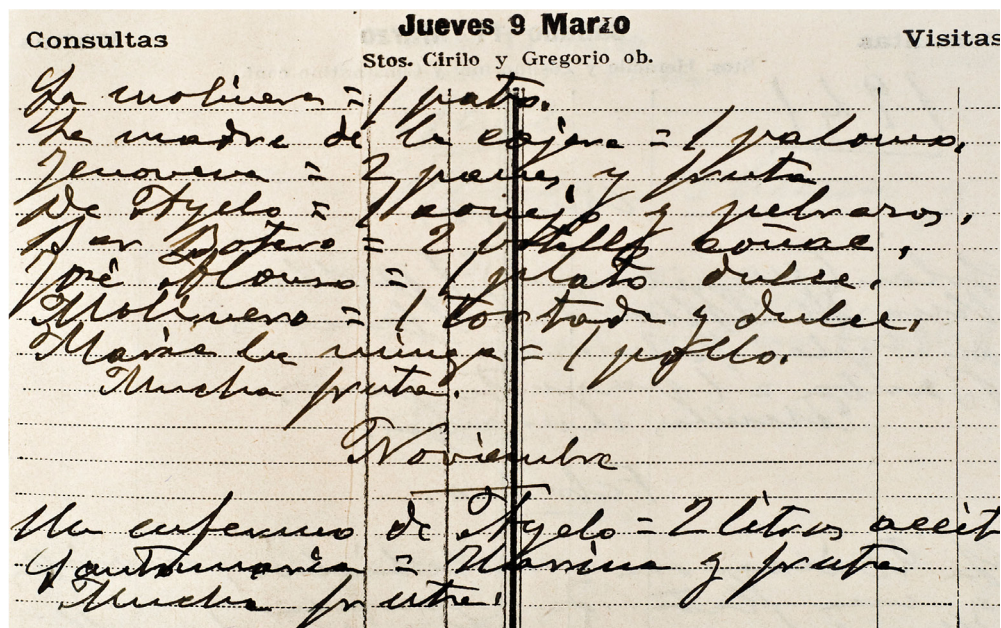 Jueves 9 Marzo
Consultas Visitas
Stos. Cirilo y Gregorio ob.
La molinera = 1 pato.
La madre de la cajera = 1 paloma.
Jenoveva = 2 panes y fruta
De Ayelo = 1 conejo y
= 2 botellas coñac.
José Alonso = 1 plato dulce.
Molinero = 1 tortada y dulce.
María la = 1 pollo.
Mucha fruta.
Noviembre
Un enfermo de Ayelo = 2 litros aceit
Santamaría = Harina y fruta
Mucha fruta.